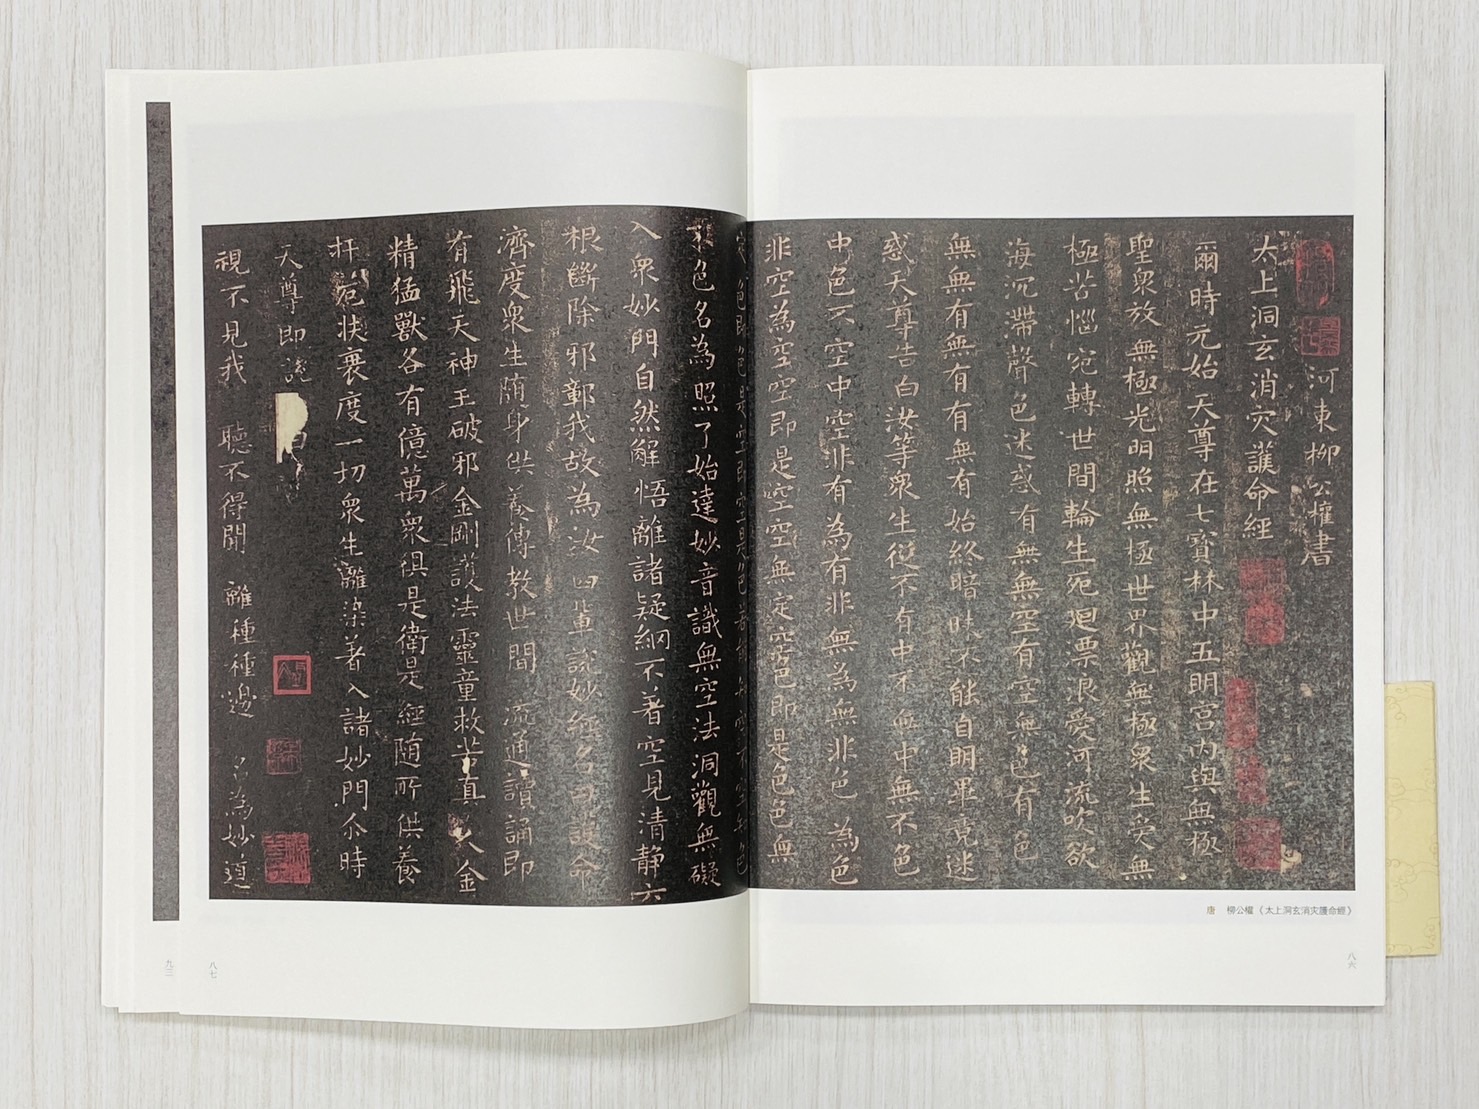 河東柳公權書
太上洞玄消灾護命經
爾時元始天尊在七寶林中五明宮內與無極
聖衆放無極光明照無極世界觀無極衆生受無
極苦惱宛轉世間輪生死廻票浪愛河流吹欲
海沉滯聲色迷惑有無無空有空無色有色
無無有無有有無有始終暗昧不能自明畢竟迷
惑天尊告白汝等衆生從不有中不無中無不色
中色不空中空非有為有非無為無非色為色
非空為空空即是空空無定空色即是色色無
色名為照了始達妙音識無空法洞觀無礙
入衆妙門自然解悟離諸疑網不著空見清静六
根斷除邪鄣我故為汝說妙經名曰護命
濟度衆生随身供養傳教世間流通讀誦即
有飛天神王破邪金剛護法靈童救苦真人金
精猛獸各有億萬衆俱是衛是經随所供養
扞厄扶衰度一切衆生離染著入諸妙門尒時
天尊即說
視不見我 聽不得聞 離種種邊 名為妙道
唐 柳公權《太上洞玄消灾護命經》
八六
八七
九三